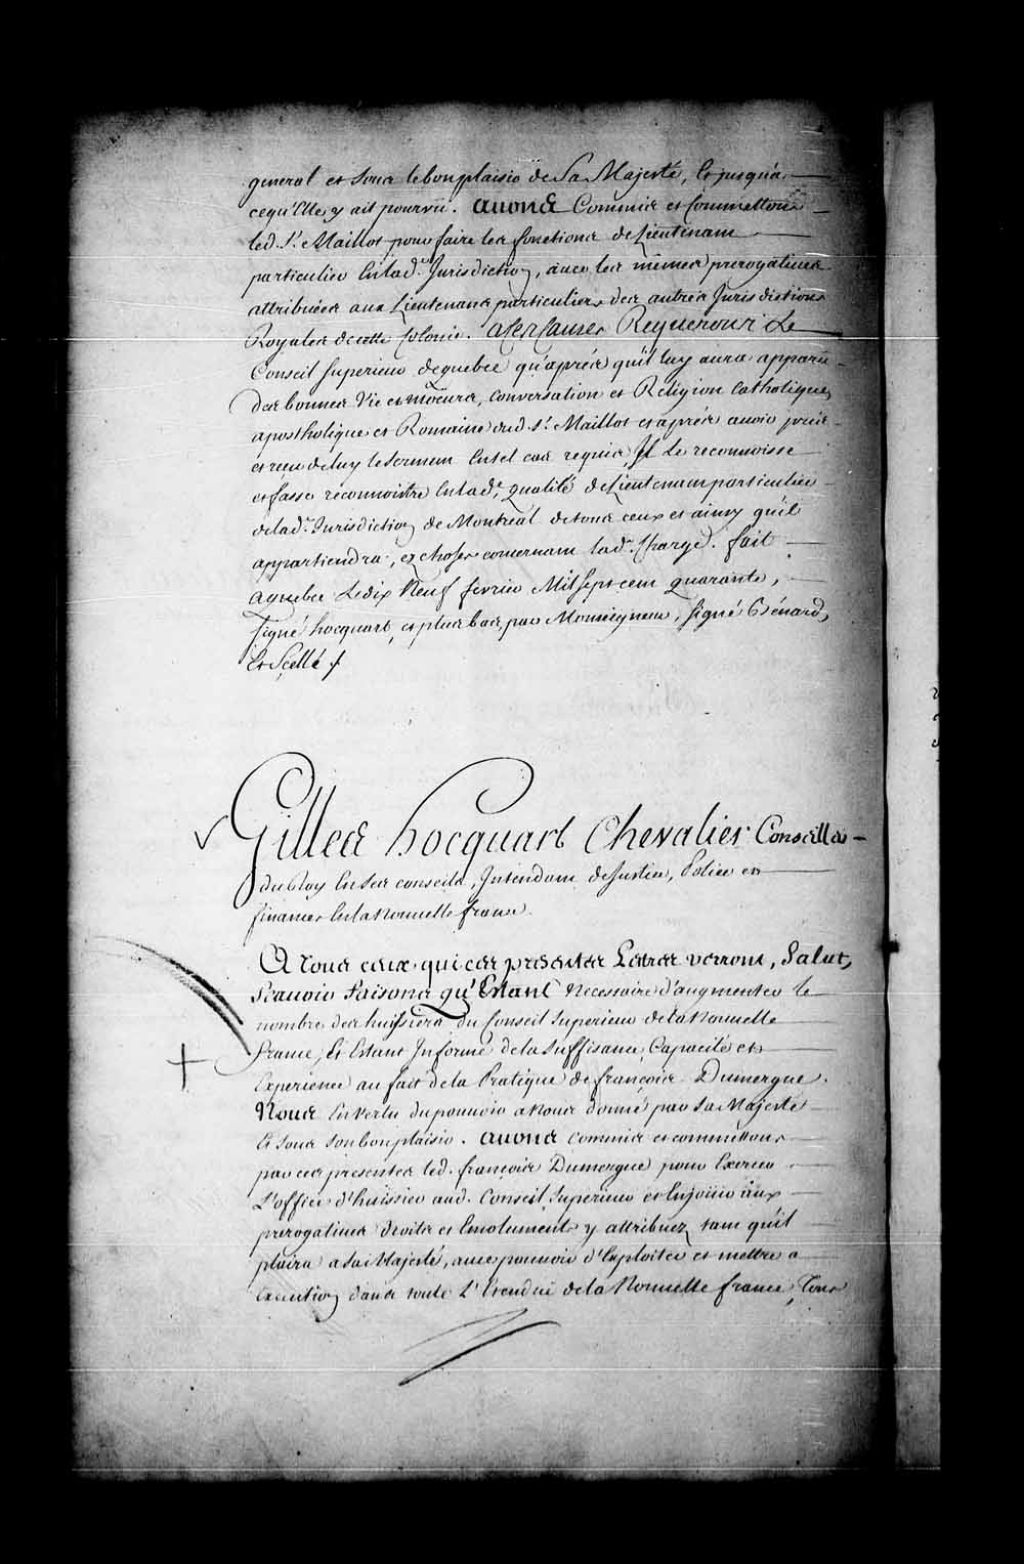 general et sous le bon plaisir de Sa Majesté, Et jusqu'à
ce qu'Elle y ait pourvû. Avons Commis et Commettons
led. Sr. Maillot pour faire les fonctions de Lieutenant
particulier En lad.e Jurisdiction, avec les mêmes prerogatives
attribuées aux Lieutenans particuliers des autres Jurisdictions
Royales de cette Colonie. A ces Causes Requerons Le
Conseil Superieur de quebec qu'aprés qu'il luy aura apparu
des bonnes Vie et moeurs, conversation et Religion Catholique,
apostholique et Romaine dud. Sr. Maillot et aprés avoir pris
et reçu de luy le serment En tel cas requis, Il Le reconnoisse
et fasse reconnoistre En lad.e qualité de Lieutenant particulier
de lad.e Jurisdiction de Montreal de tous ceux et ainsy qu'il
appartiendra, ez choses concernant lad.e Charge. fait
a quebec Le dix Neuf fevrier Mil sept cent quarante,
signé hocquart, et plus bas, par Monseigneur, signé Bénard,
Et Scellé ./.
Gilles hocquart Chevalier Conseiller
du Roy En ses conseils, Intendant de Justice, Police et
finances En la Nouvelle france.
A Tous ceux qui ces presentes Lettres verront, Salut,
Scavoir Faisons qu'Estant Necessaire d'augmenter le
nombre des huissiers du Conseil Superieur de la Nouvelle
france, Et Estant Informé de la suffisance, Capacité et
Experience au fait de la Pratique de françois Dumergue.
Nous En Vertu du pouvoir a Nous donné par Sa Majesté
Et sous son bon plaisir. Avons commis et commettons
par ces presentes led. françois Dumergue pour Exercer
L'office d'huissier aud. Conseil Superieur et En jouir aux
prerogatives droits et Emoluments y attribuez tant qu'il
plaira a Sa Majesté, avec pouvoir d'Exploiter et mettre a
Execution dans toute L'Etendüe de la Nouvelle france, Tous